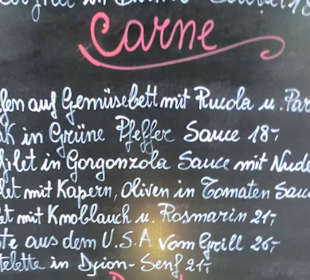 Carne
fen auf Gemüsebett mit Rucola u. Par
k in Grüne Pfeffer Sauce 18,-
ilet in Gorgonzola Sauce mit Nude
let mit Kapern, Oliven in Tomaten Sauc
et mit Knoblauch u. Rosmarin 21,-
te aus dem U.S.A vom Grill 26,-
telette in Djion-Senf 21,-